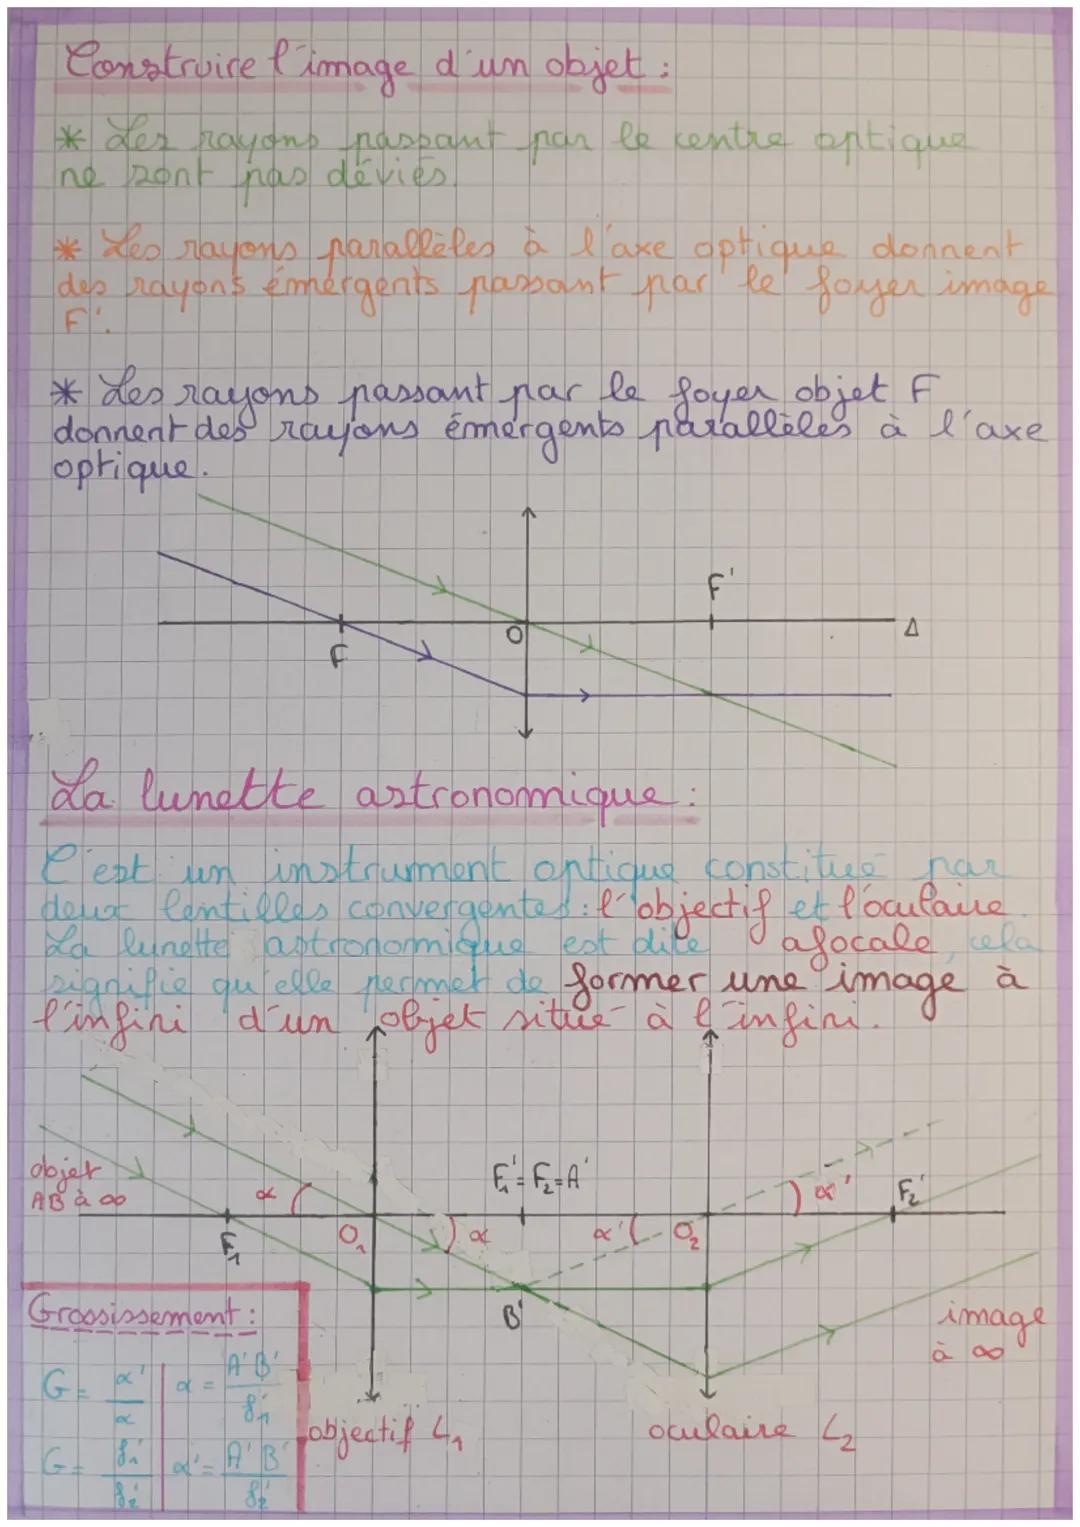 Construire l'image d'un objet :
* Les rayons passant par le centre optique
ne sont pas déviés.
* Les rayons parallèles à l'axe optique donnent
des rayons émergents passant par le foyer image
F'.
* Les rayons passant par le foyer objet F
donnent des rayons émergents parallèles à l'axe
optique.
F'
O
Δ
F
La lunette astronomique :
C'est un instrument optique constitué par
deux lentilles convergentes : l'objectif et l'oculaire.
La lunette astronomique est dite afocale, cela
signifie qu'elle permet de former une image à
l'infini d'un objet situé à l'infini.
objet
AB à ∞
α
F₁'=F₂=A'
α'
F₂'
F₁
O₁
α
α'
O₂
B'
image
à ∞
Grossissement :
G = α'/α
α = A'B'/f₁'
G = f₁'/f₂'
α' = A'B'/f₂'
objectif L₁
oculaire L₂